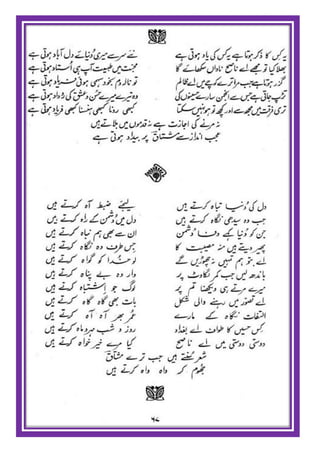 یہ کس کا ذکر ہوتا ہے یہ کس کی یاد ہوتی ہے
نئے سرے سے میری دنیائے دل آباد ہوتی ہے
بھلا کیا تو مجھے اے ناصح ناداں سکھائے گا
محبت میں طبیعت آپ ہی استاد ہوتی ہے
گزر ہوتا ہے جب میرا ترے کوچے میں اے ظالم
تو نالہ خود بخود کبھی ہوتی فریاد ہوتی ہے
تڑپ جاتی ہے جس سے انجمن سارے حسینوں کی
وہ تیرے میرے حسن و عشق کی روداد ہوتی ہے
تری فرقت میں مجھ سے اور کچھ تو ہو نہیں سکتا
کبھی رونا کبھی ہنسنا کبھی فریاد ہوتی ہے
نہ مرنے کی اجازت ہے نہ قدموں میں بلاتے ہیں
عجب انداز سے مشتاق پر بیداد ہوتی ہے
دل کی دنیا تباہ کرتے ہیں
لیجئے ضبط آہ کرتے ہیں
جب وہ سیدھی نگاہ کرتے ہیں
دل میں دشمن کے راہ کرتے ہیں
جن کو دنیا کہے وفا دشمن
ان سے بھی ہم نباہ کرتے ہیں
پھیر دیتے ہیں منہ مصیبت کا
جس طرف وہ نگاہ کرتے ہیں
اے بتو ہم تمہیں نہ چھوڑیں گے
لو خدا کو گواہ کرتے ہیں
باندھ لیں جب کمر لگاوٹ پر
وار وہ بے پناہ کرتے ہیں
میرے مرتے ہی دیکھنا تم پر
لوگ جو اشتباہ کرتے ہیں
اے تصور میں رہنے والی شکل
بات بھی گاہ گاہ کرتے ہیں
التفات نگاہ کے مارے
عمر بھر آہ آہ کرتے ہیں
کس حسیں کا طواف اے بغداد
روز و شب مہر و ماہ کرتے ہیں
دوستی دوستی میں اے ناصح
کیا مرے خیر خواہ کرتے ہیں
شعر سنتے ہیں جب ترے مشتاق
جھوم کر واہ واہ کرتے ہیں
۶۷